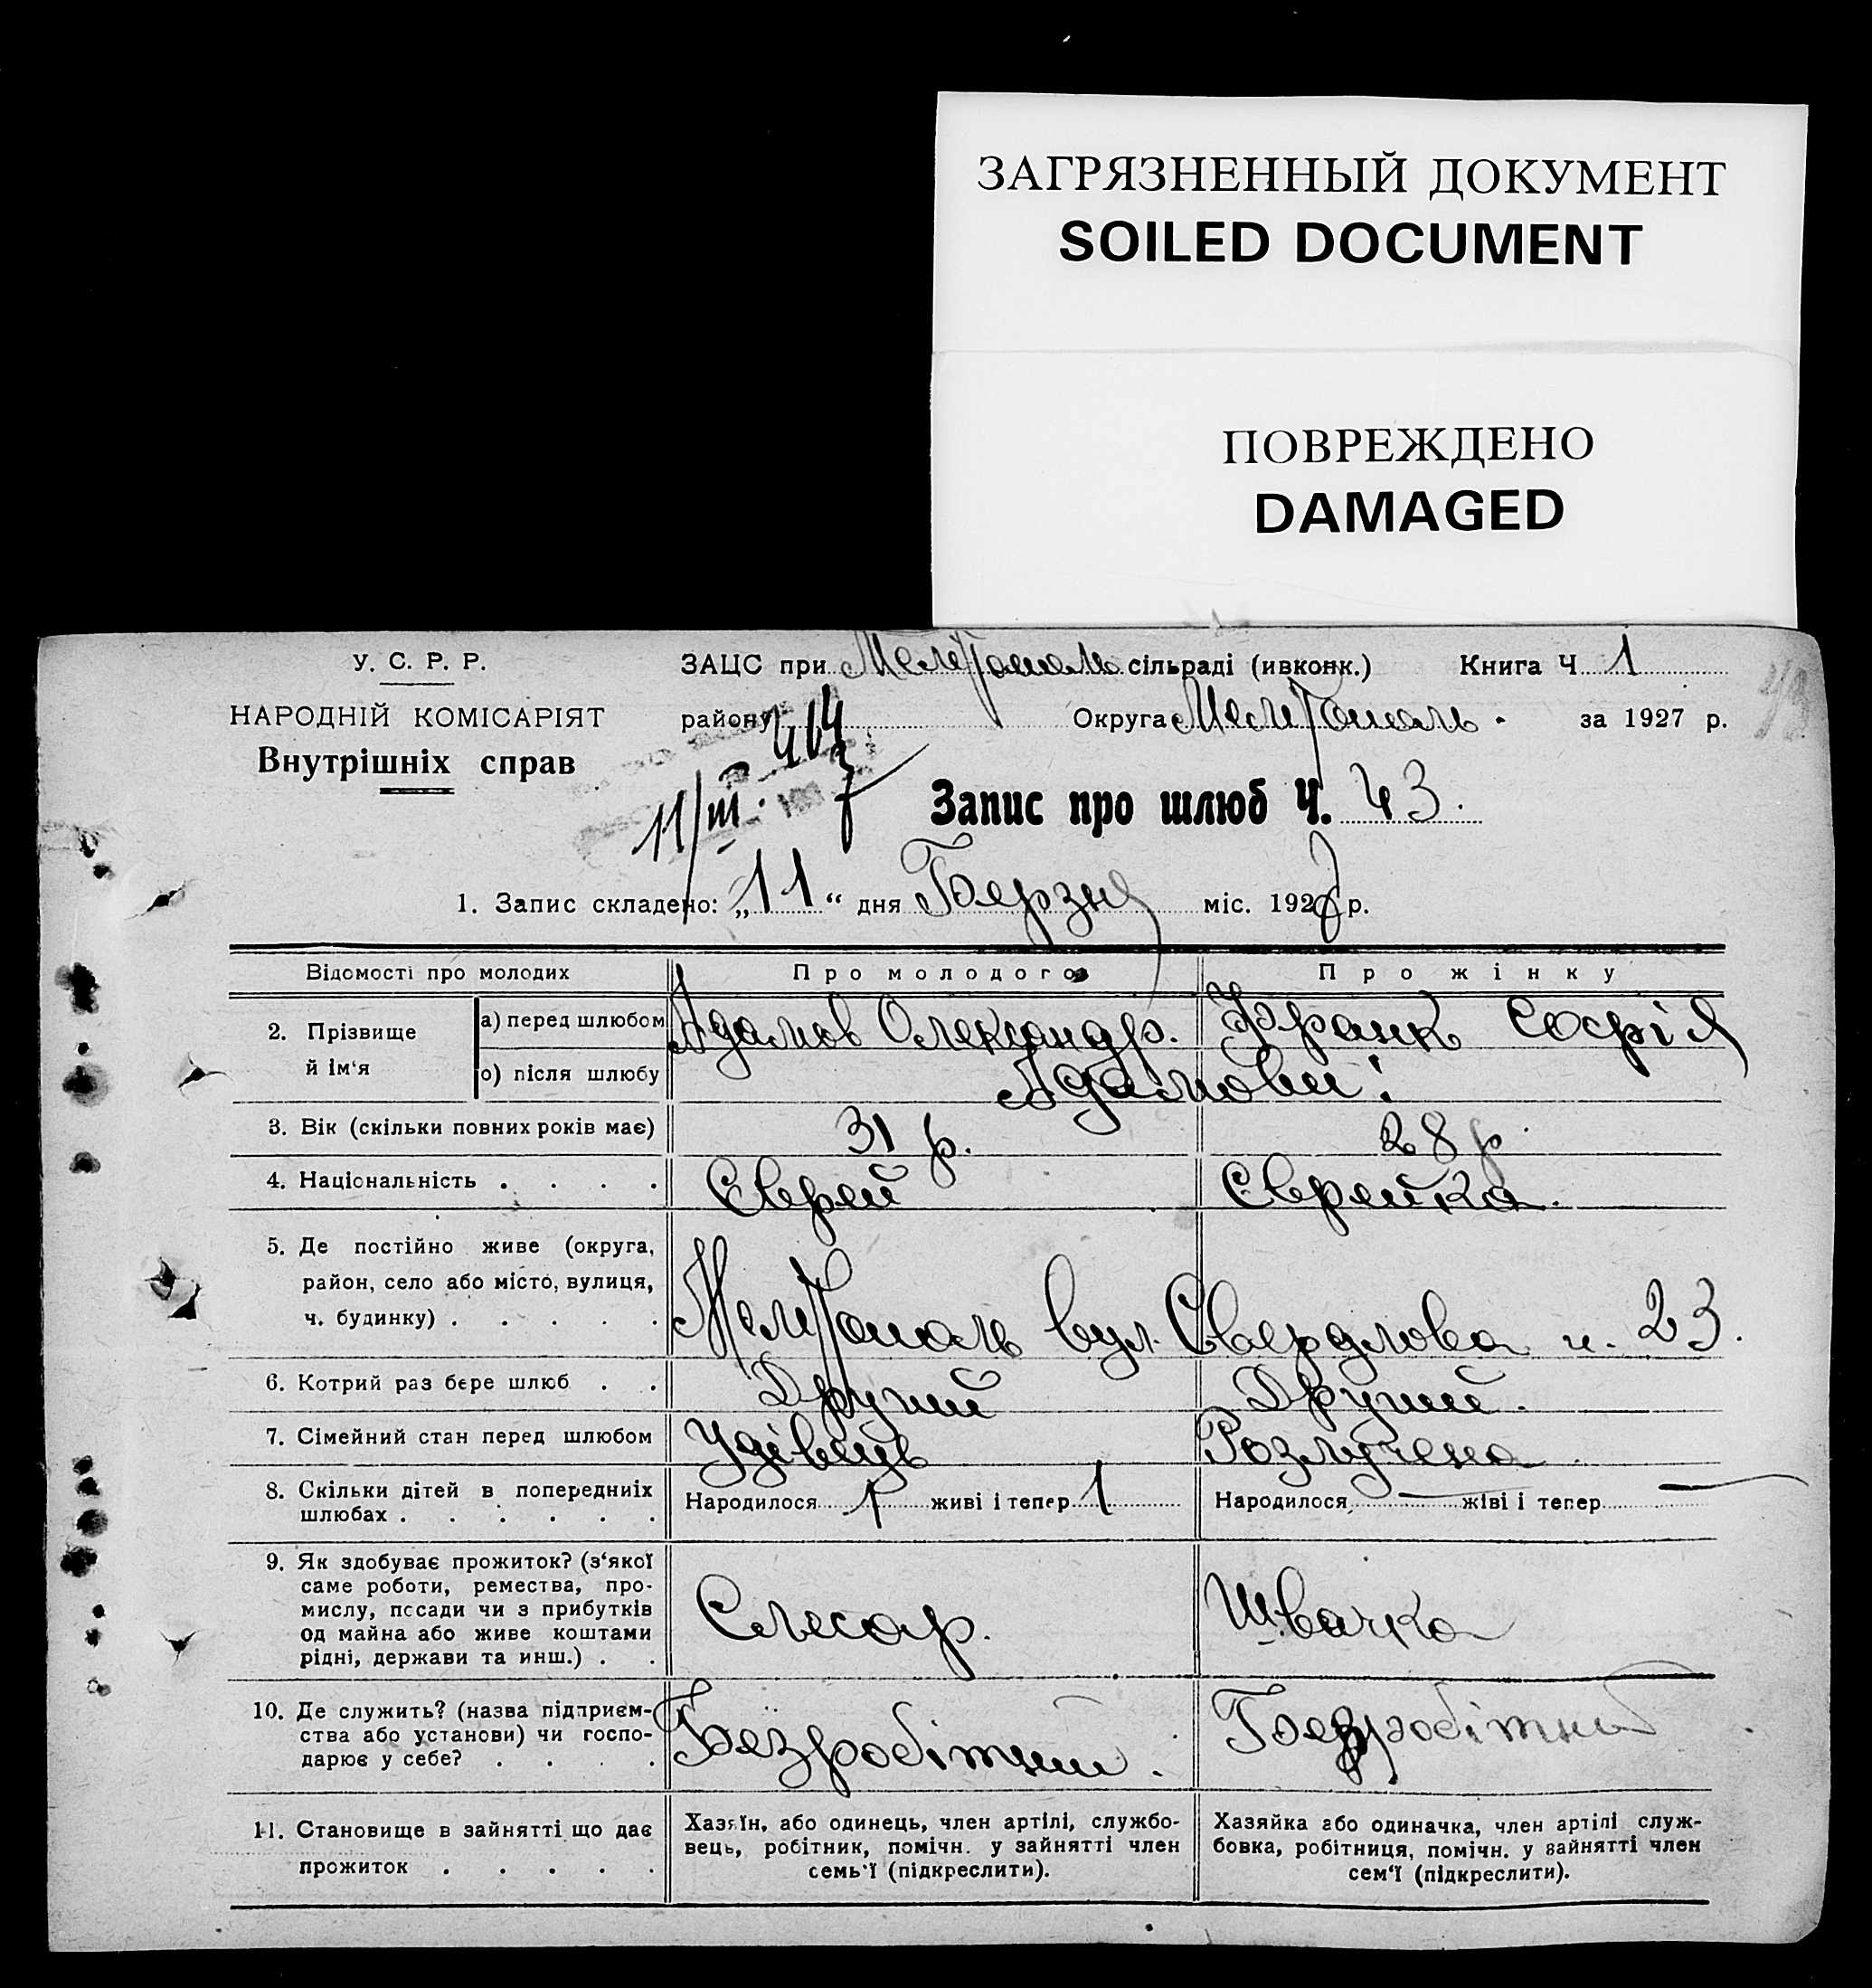 ЗАГРЯЗНЕННЫЙ ДОКУМЕНТ
SOILED DOCUMENT
ПОВРЕЖДЕНО
DAMAGED
У. С. Р. Р.
НАРОДНІЙ КОМІСАРІЯТ
Внутрішніх справ
ЗАЦС при Мелітополь сільраді (ивконк.) Книга Ч 1
району Округа Мелітополь. за 1927 р.
43
414
11/III.
Запис про шлюб Ч. 43.
1. Запис складено: „11“ дня Березня міс. 1927 р.
Відомості про молодих Про молодого Про жінку
2. Прізвище й ім‘я
а) перед шлюбом Адамов Олександр. Франк Софія
о) після шлюбу Адамови.
3. Вік (скільки повних років має) 31 р. 28 р.
4. Національність . . . . Єврей Єврейка.
5. Де постійно живе (округа,
район, село або місто, вулиця,
ч. будинку) . . . . . Мелітополь вул. Свердлова ч. 23.
6. Котрий раз бере шлюб . . Другий Другий.
7. Сімейний стан перед шлюбом Удівець Розлучена
8. Скільки дітей в попередниіх
шлюбах . . . . . . Народилося 1 живі і тепер 1 Народилося — жіві і тепер —
9. Як здобуває прожиток? (з‘якої
саме роботи, ремества, про-
мислу, посади чи з прибутків
од майна або живе коштами
рідні, держави та инш.) . .
Слесар. Швачка
10. Де служить? (назва підприєм-
ства або установи) чи госпо-
дарює у себе? . . . .
Безробітний. Безробітна
11. Становище в зайнятті що дає
прожиток . . . . .
Хазяїн, або одинець, член артілі, службо-
вець, робітник, помічн. у зайнятті член
семь'ї (підкреслити).
Хазяйка або одиначка, член артілі служ-
бовка, робітниця, помічн. у зайнятті член
сем‘ї (підкреслити).